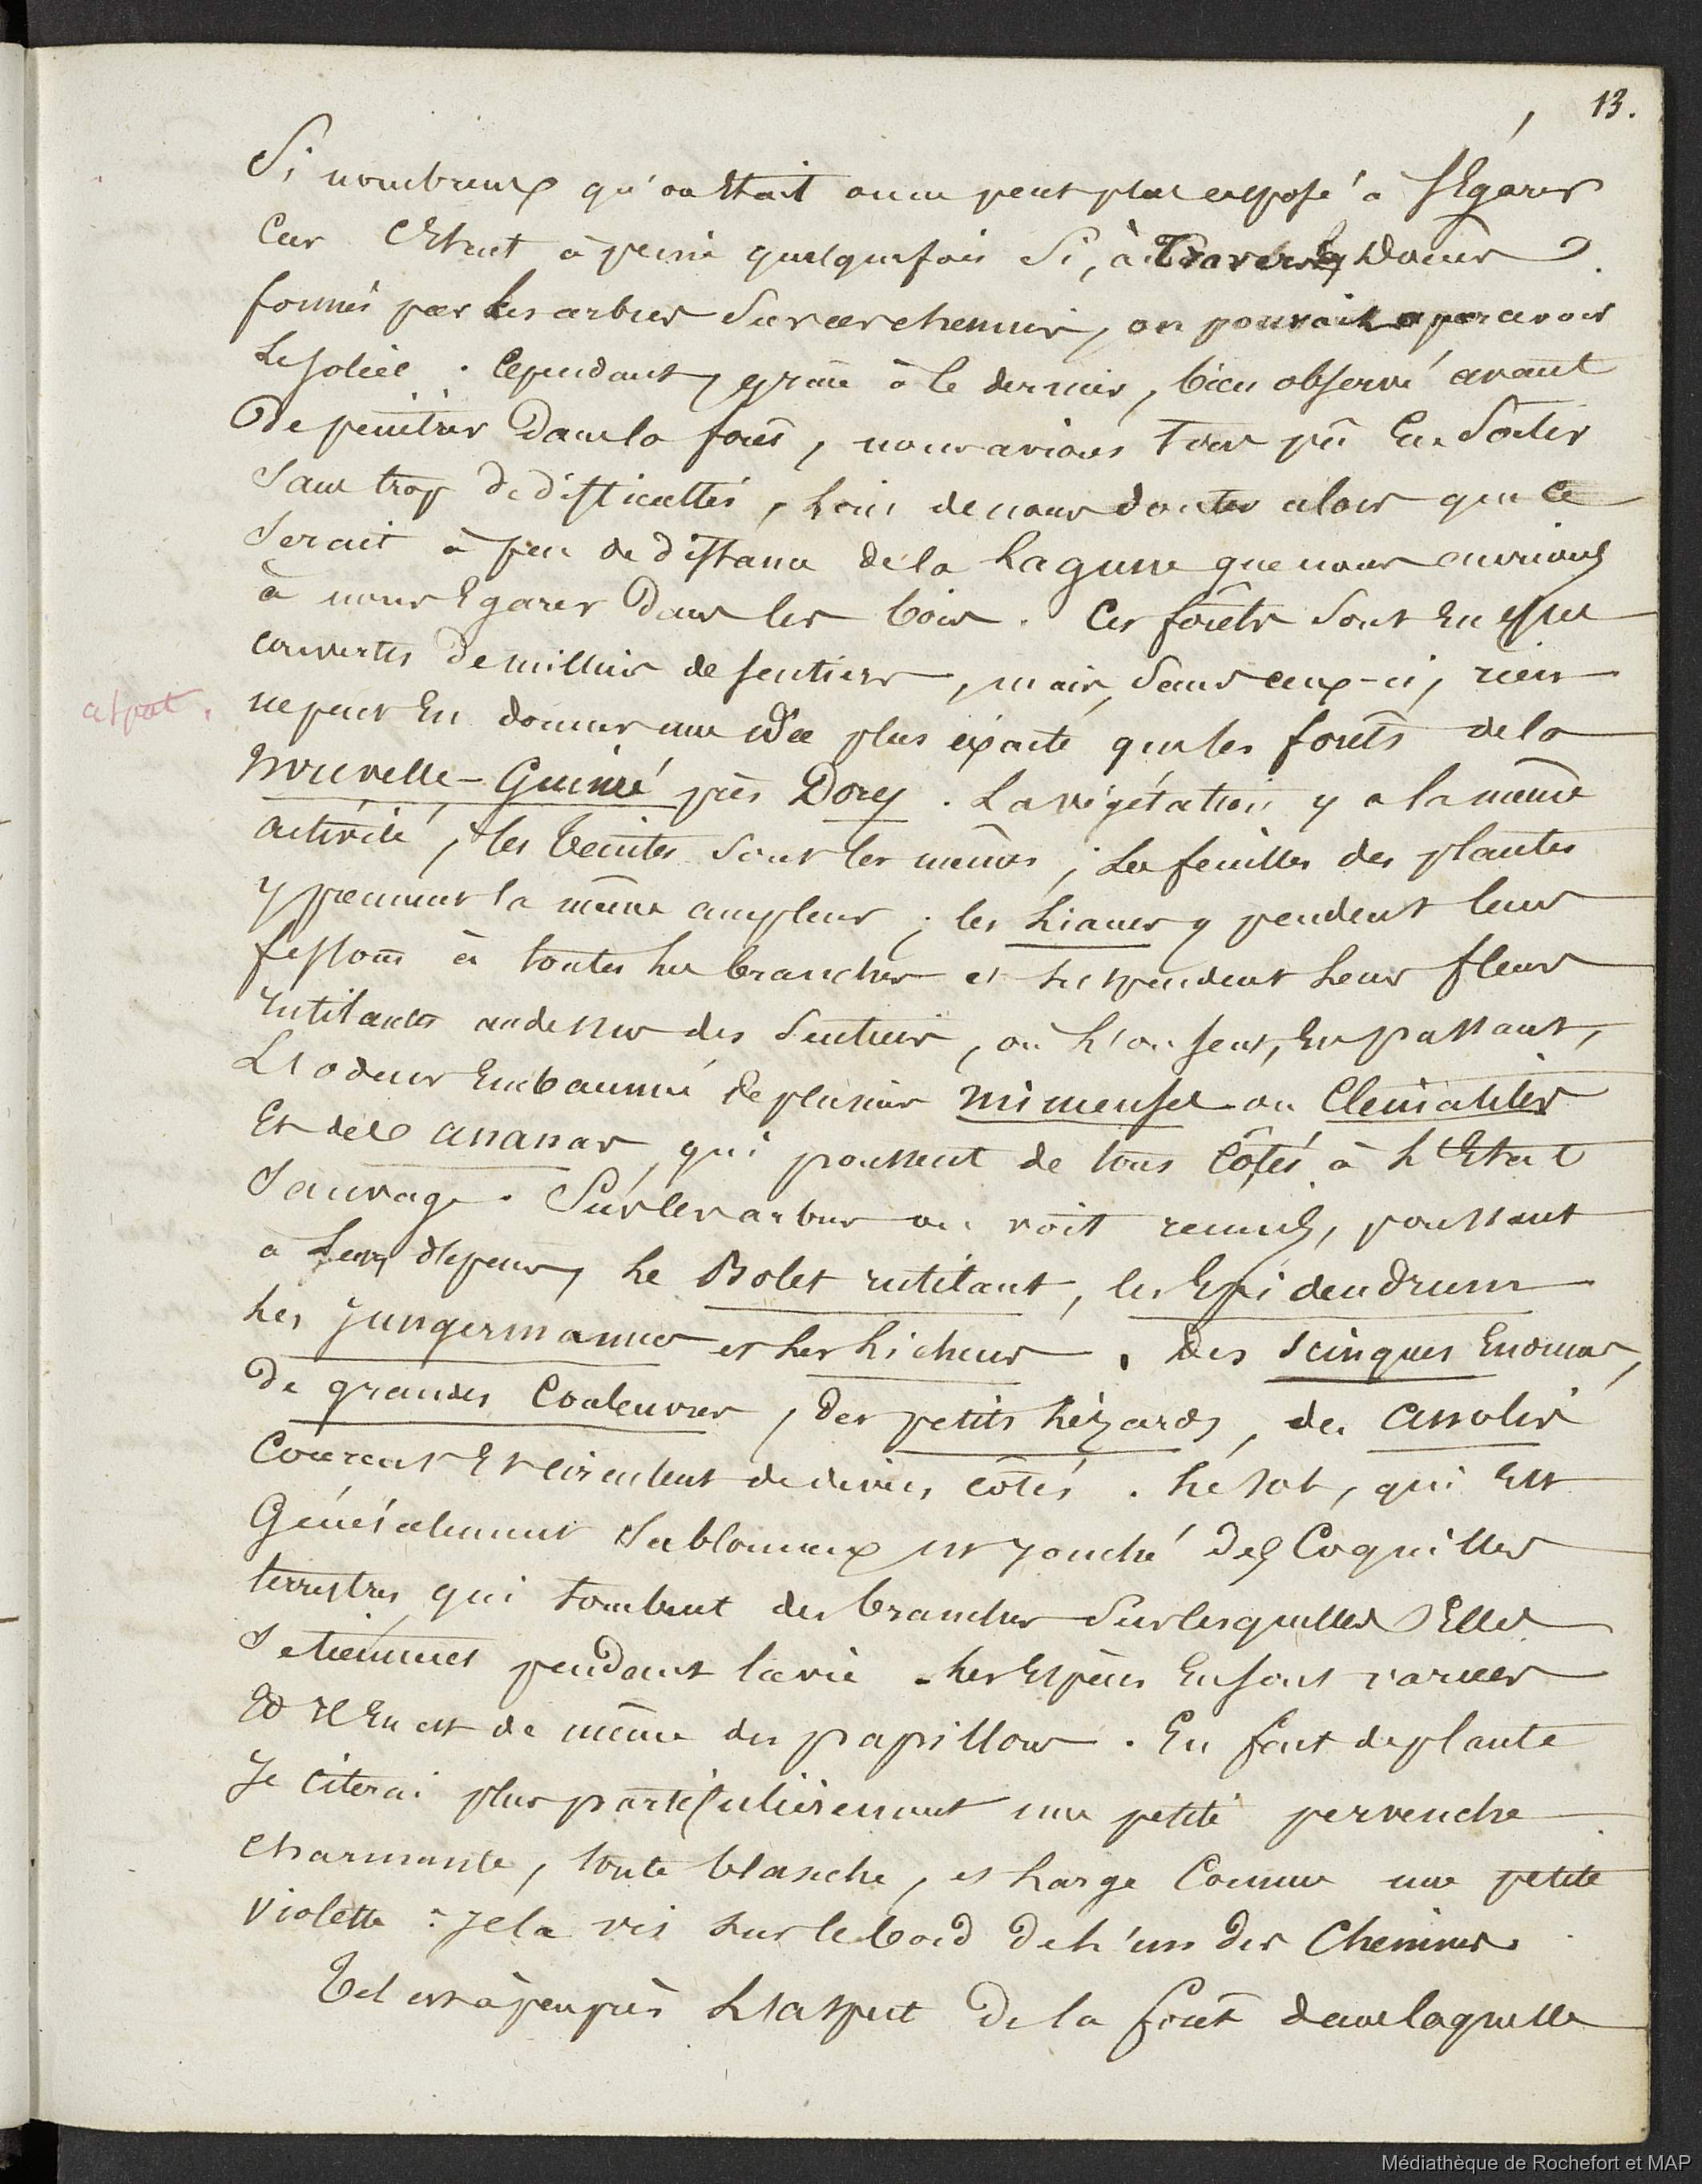 13.
Si nombreux qu'on était on ne peut plus exposé à s'Egarer
Car C'Etait à peine quelquefois Si, à Travers les Dômes
formés par les arbres Sur ces chemins, on pouvait apercevoir
le soleil. Cependant, grâce à ce dernier, bien observé avant
De pénétrer Dans la forêt, nous avions Tous pû En Sortir
Sans trop De difficultés, Loin de nous douter alors que Ce
Serait à peu de distance de la Lagune que nous
à nous Egarer Dans les bois. Ces forêts Sont En effet
couvertes De milliers de sentiers, mais, Sans ceux-ci, rien
aspect.
ne peut En donner une idée plus exacte que les forêts de la
Nouvelle-Guinée près Dorey. La végétation y a la même
activité, les teintes Sont les mêmes; Les feuilles des plantes
y prennent la même ampleur; les Lianes y pendent leurs
festons à toutes les branches et suspendent Leurs fleurs
rutilantes au dessus des Sentiers, où L'on sent, En passant,
L'odeur Embaumée de plusieurs mimeuses ou Clématites
Et des ananas, qui poussent de tous Côtés à L'Etat
Sauvage. Sur les arbres on voit réunis, poussant
à Leurs dépens, Le Bolet rutilant, les Epidendrum
Les Jungermannes et Les Lichens. Des Scinques Enormes,
De grandes Couleuvres, des petits Lézards, des Annolis
Courent Et circulent de divers côtés. Le sol, qui Est
Généralement Sablonneux est jonché Des Coquilles
terrestres qui tombent des branches Sur lesquelles Elles
Se tiennent pendant la vie. Les Espèces En sont variées
Et Il En est de même des papillons. En fait de plante
Je Citerai plus particulièrement une petite pervenche
charmante, toute blanche, et Large Comme une petite
Violette: Je la vis Sur le bord De L'un des Chemins.
Tel est à peu près L'aspect De la forêt dans laquelle
Médiathèque de Rochefort et MAP